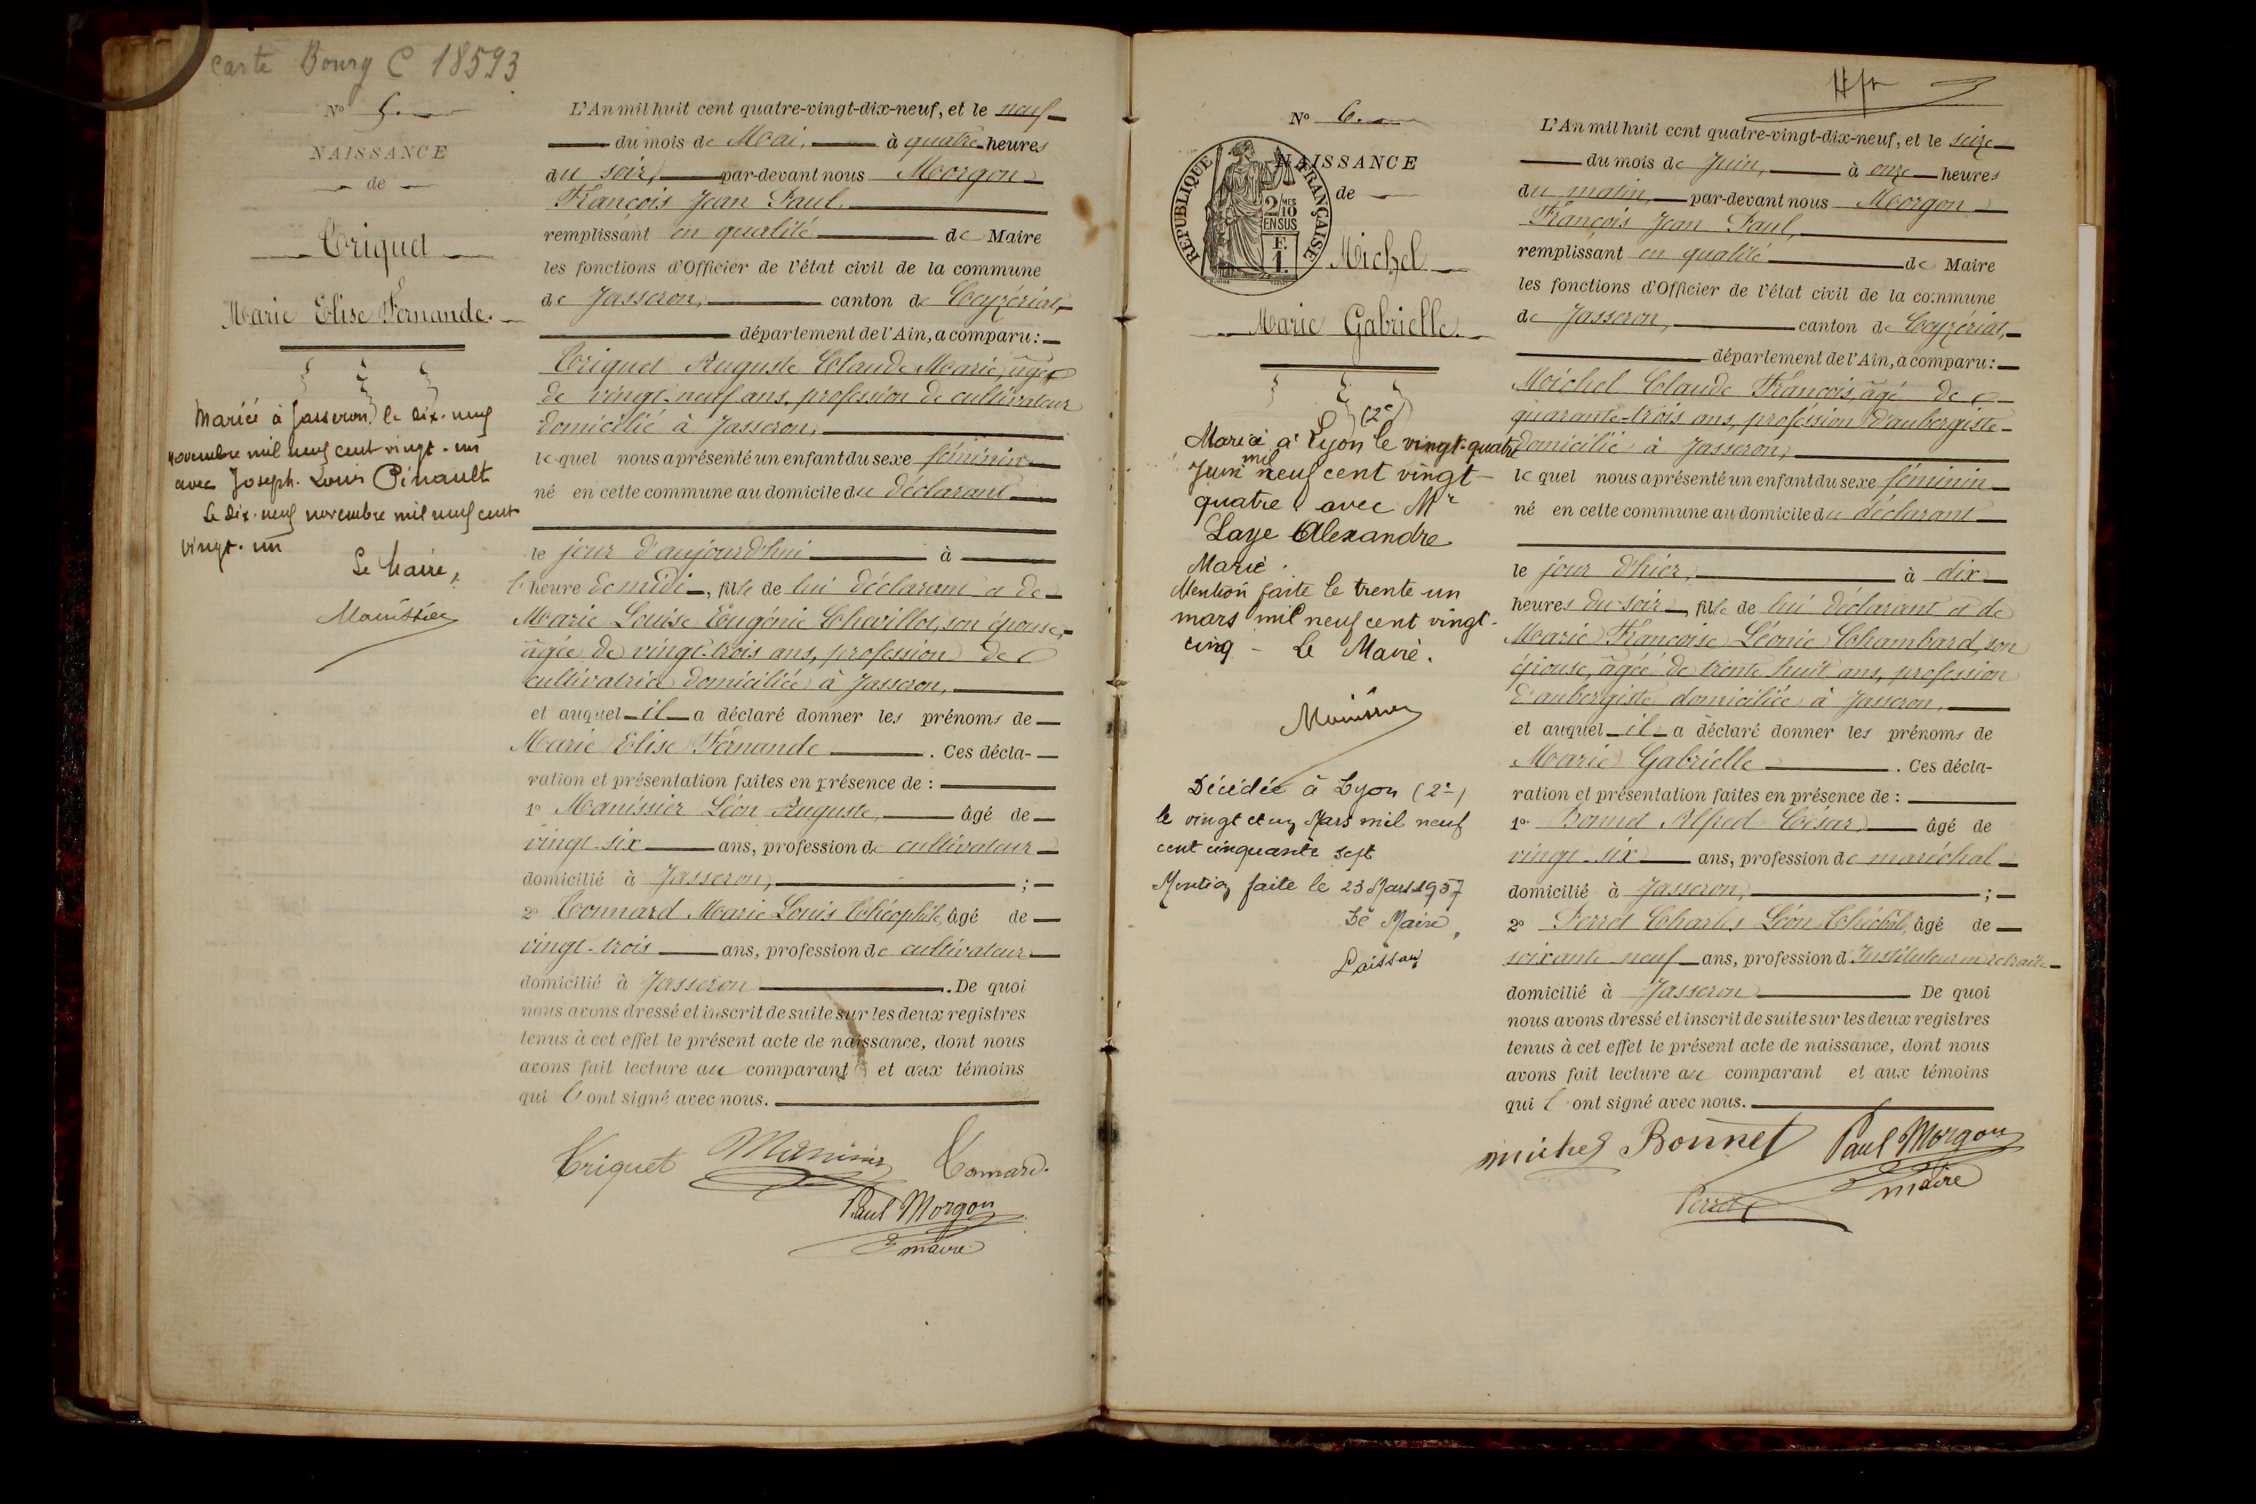 carte Bourg C 18593
N° 5.
NAISSANCE
de
Triquet
Marie Elise Fernande.
Mariée à Jasseron le dix-neuf
novembre mil neuf cent vingt-un
avec Joseph-Louis Pinault
Le dix-neuf novembre mil neuf cent
vingt-un
Le Maire,
Manissier
L'An mil huit cent quatre-vingt-dix-neuf, et le neuf
du mois de Mai, à quatre heures
du soir, par-devant nous Morgon
François Jean Paul,
remplissant en qualité de Maire
les fonctions d'Officier de l'état civil de la commune
de Jasseron, canton de Ceyzériat,
département de l'Ain, a comparu :
Triquet Auguste Claude Marie, âgé
de vingt-neuf ans, profession de cultivateur
domicilié à Jasseron,
lequel nous a présenté un enfant du sexe féminin
né en cette commune au domicile du déclarant
le jour d'aujourd'hui à
l'heure de midi, fille de lui déclarant et de
Marie Louise Eugénie Chevillot, son épouse,
âgée de vingt-trois ans, profession de
cultivatrice domiciliée à Jasseron,
et auquel il a déclaré donner les prénoms de
Marie Elise Fernande. Ces décla-
ration et présentation faites en présence de :
1° Manissier Léon Auguste, âgé de
vingt-six ans, profession de cultivateur
domicilié à Jasseron, ;
2° Connard Marie Louis Théophile, âgé de
vingt-trois ans, profession de cultivateur
domicilié à Jasseron. De quoi
nous avons dressé et inscrit de suite sur les deux registres
tenus à cet effet le présent acte de naissance, dont nous
avons fait lecture au comparant et aux témoins
qui l'ont signé avec nous.
Triquet Manissier Connard.
Paul Morgon
maire
N° 6.
RÉPUBLIQUE FRANÇAISE
2 MES
10
EN SUS
F.
1.
NAISSANCE
de
Michel
Marie Gabrielle.
(2e)
Mariée à Lyon le vingt-quatre
Juin mil neuf cent vingt-
quatre avec Mr
Laye Alexandre
Marie.
Mention faite le trente un
mars mil neuf cent vingt-
cinq - Le Maire.
Manissier
Décédée à Lyon (2e)
le vingt et un Mars mil neuf
cent cinquante sept
Mention faite le 23 Mars 1957
Le Maire,
L'An mil huit cent quatre-vingt-dix-neuf, et le seize
du mois de Juin, à onze heures
du matin, par-devant nous Morgon
François Jean Paul,
remplissant en qualité de Maire
les fonctions d'Officier de l'état civil de la commune
de Jasseron, canton de Ceyzériat,
département de l'Ain, a comparu :
Michel Claude François, âgé de
quarante-trois ans, profession d'aubergiste
domicilié à Jasseron,
lequel nous a présenté un enfant du sexe féminin
né en cette commune au domicile du déclarant
le jour d'hier, à dix
heures du soir, fille de lui déclarant et de
Marie Françoise Léonie Chambard, son
épouse, âgée de trente huit ans, profession
d'aubergiste, domiciliée à Jasseron,
et auquel il a déclaré donner les prénoms de
Marie Gabrielle. Ces décla-
ration et présentation faites en présence de :
1° Bonnet Alfred César, âgé de
vingt-six ans, profession de maréchal
domicilié à Jasseron, ;
2° Perret Charles Léon, âgé de
soixante-neuf ans, profession d'Instituteur en retraite
domicilié à Jasseron De quoi
nous avons dressé et inscrit de suite sur les deux registres
tenus à cet effet le présent acte de naissance, dont nous
avons fait lecture au comparant et aux témoins
qui l'ont signé avec nous.
michel Bonnet Paul Morgon
Perret maire